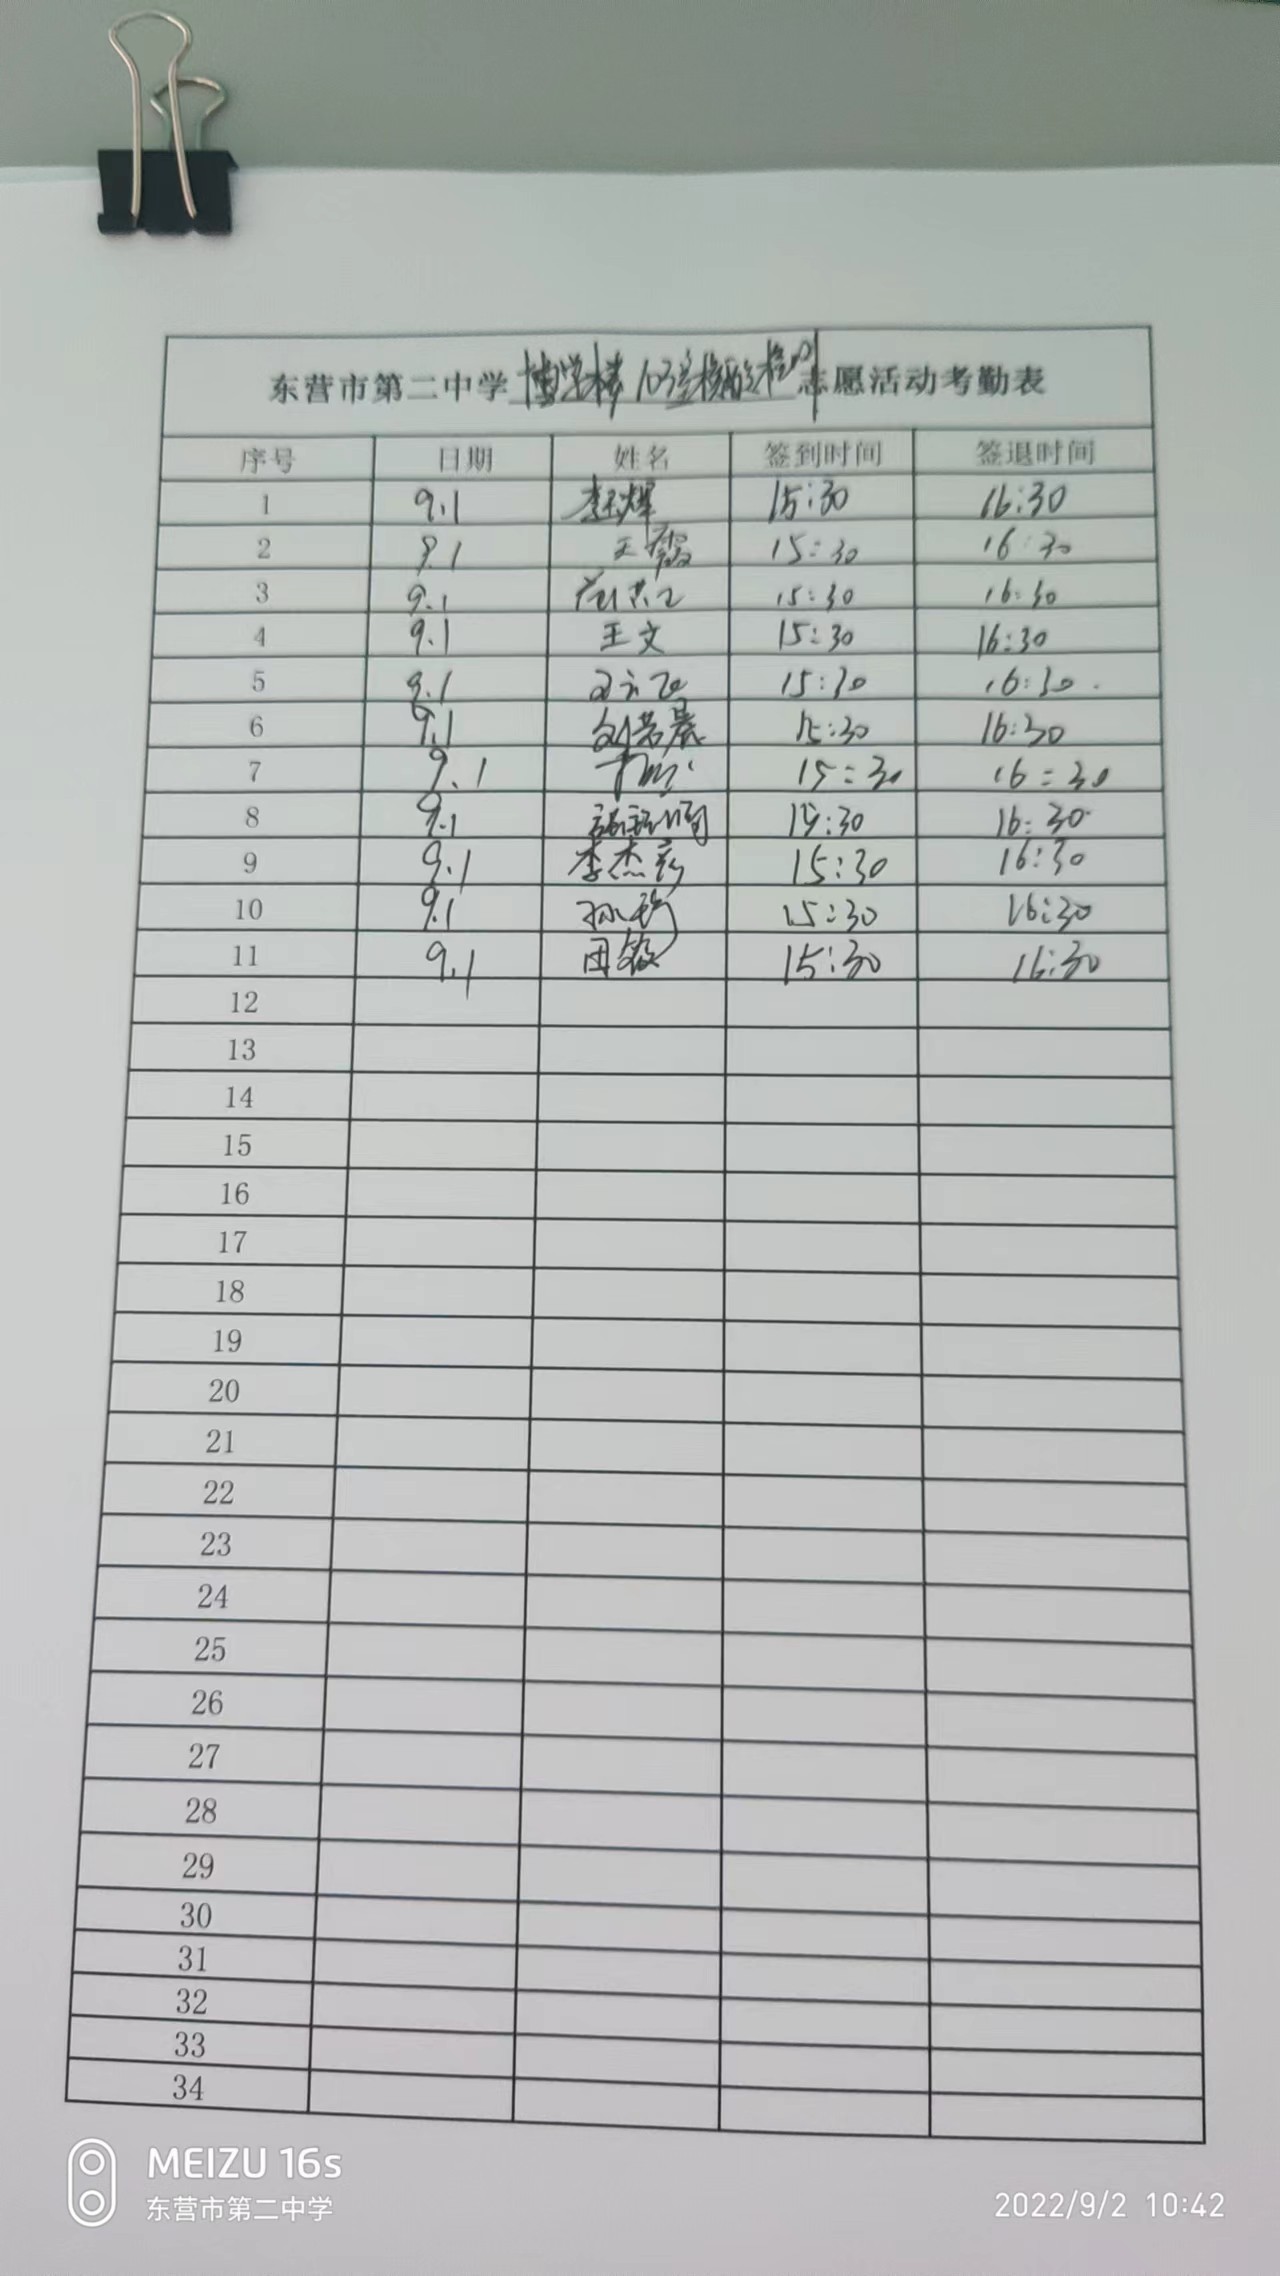 东营市第二中学博学楼103室核酸检测志愿活动考勤表
序号 日期 姓名 签到时间 签退时间
1 9.1 15:30 16:30
2 9.1 王霞 15:30 16:30
3 9.1 15:30 16:30
4 9.1 王文 15:30 16:30
5 9.1 15:30 16:30
6 9.1 刘若晨 15:30 16:30
7 9.1 15:30 16:30
8 9.1 15:30 16:30
9 9.1 李杰 15:30 16:30
10 9.1 孙 15:30 16:30
11 9.1 田 15:30 16:30
12
13
14
15
16
17
18
19
20
21
22
23
24
25
26
27
28
29
30
31
32
33
34
MEIZU 16s
东营市第二中学
2022/9/2 10:42